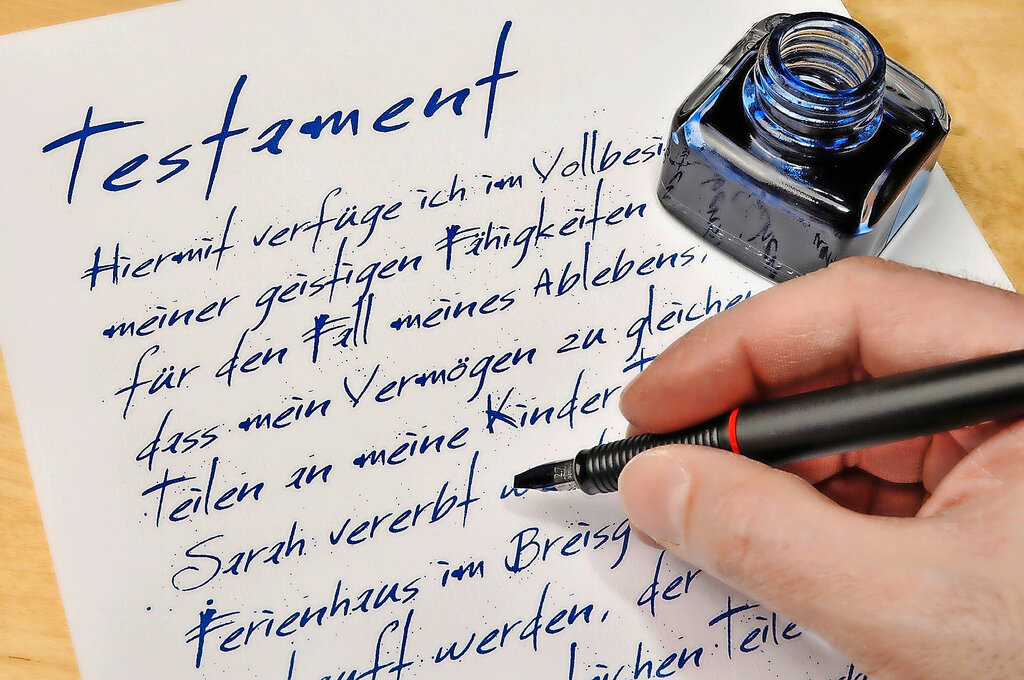 Testament
Hiermit verfüge ich im Vollbesi
meiner geistigen Fähigkeiten
für den Fall meines Ablebens,
dass mein Vermögen zu gleichen
Teilen an meine Kinder T
Sarah vererbt w
Ferienhaus im Breisg
kauft werden, der
leichen Teile